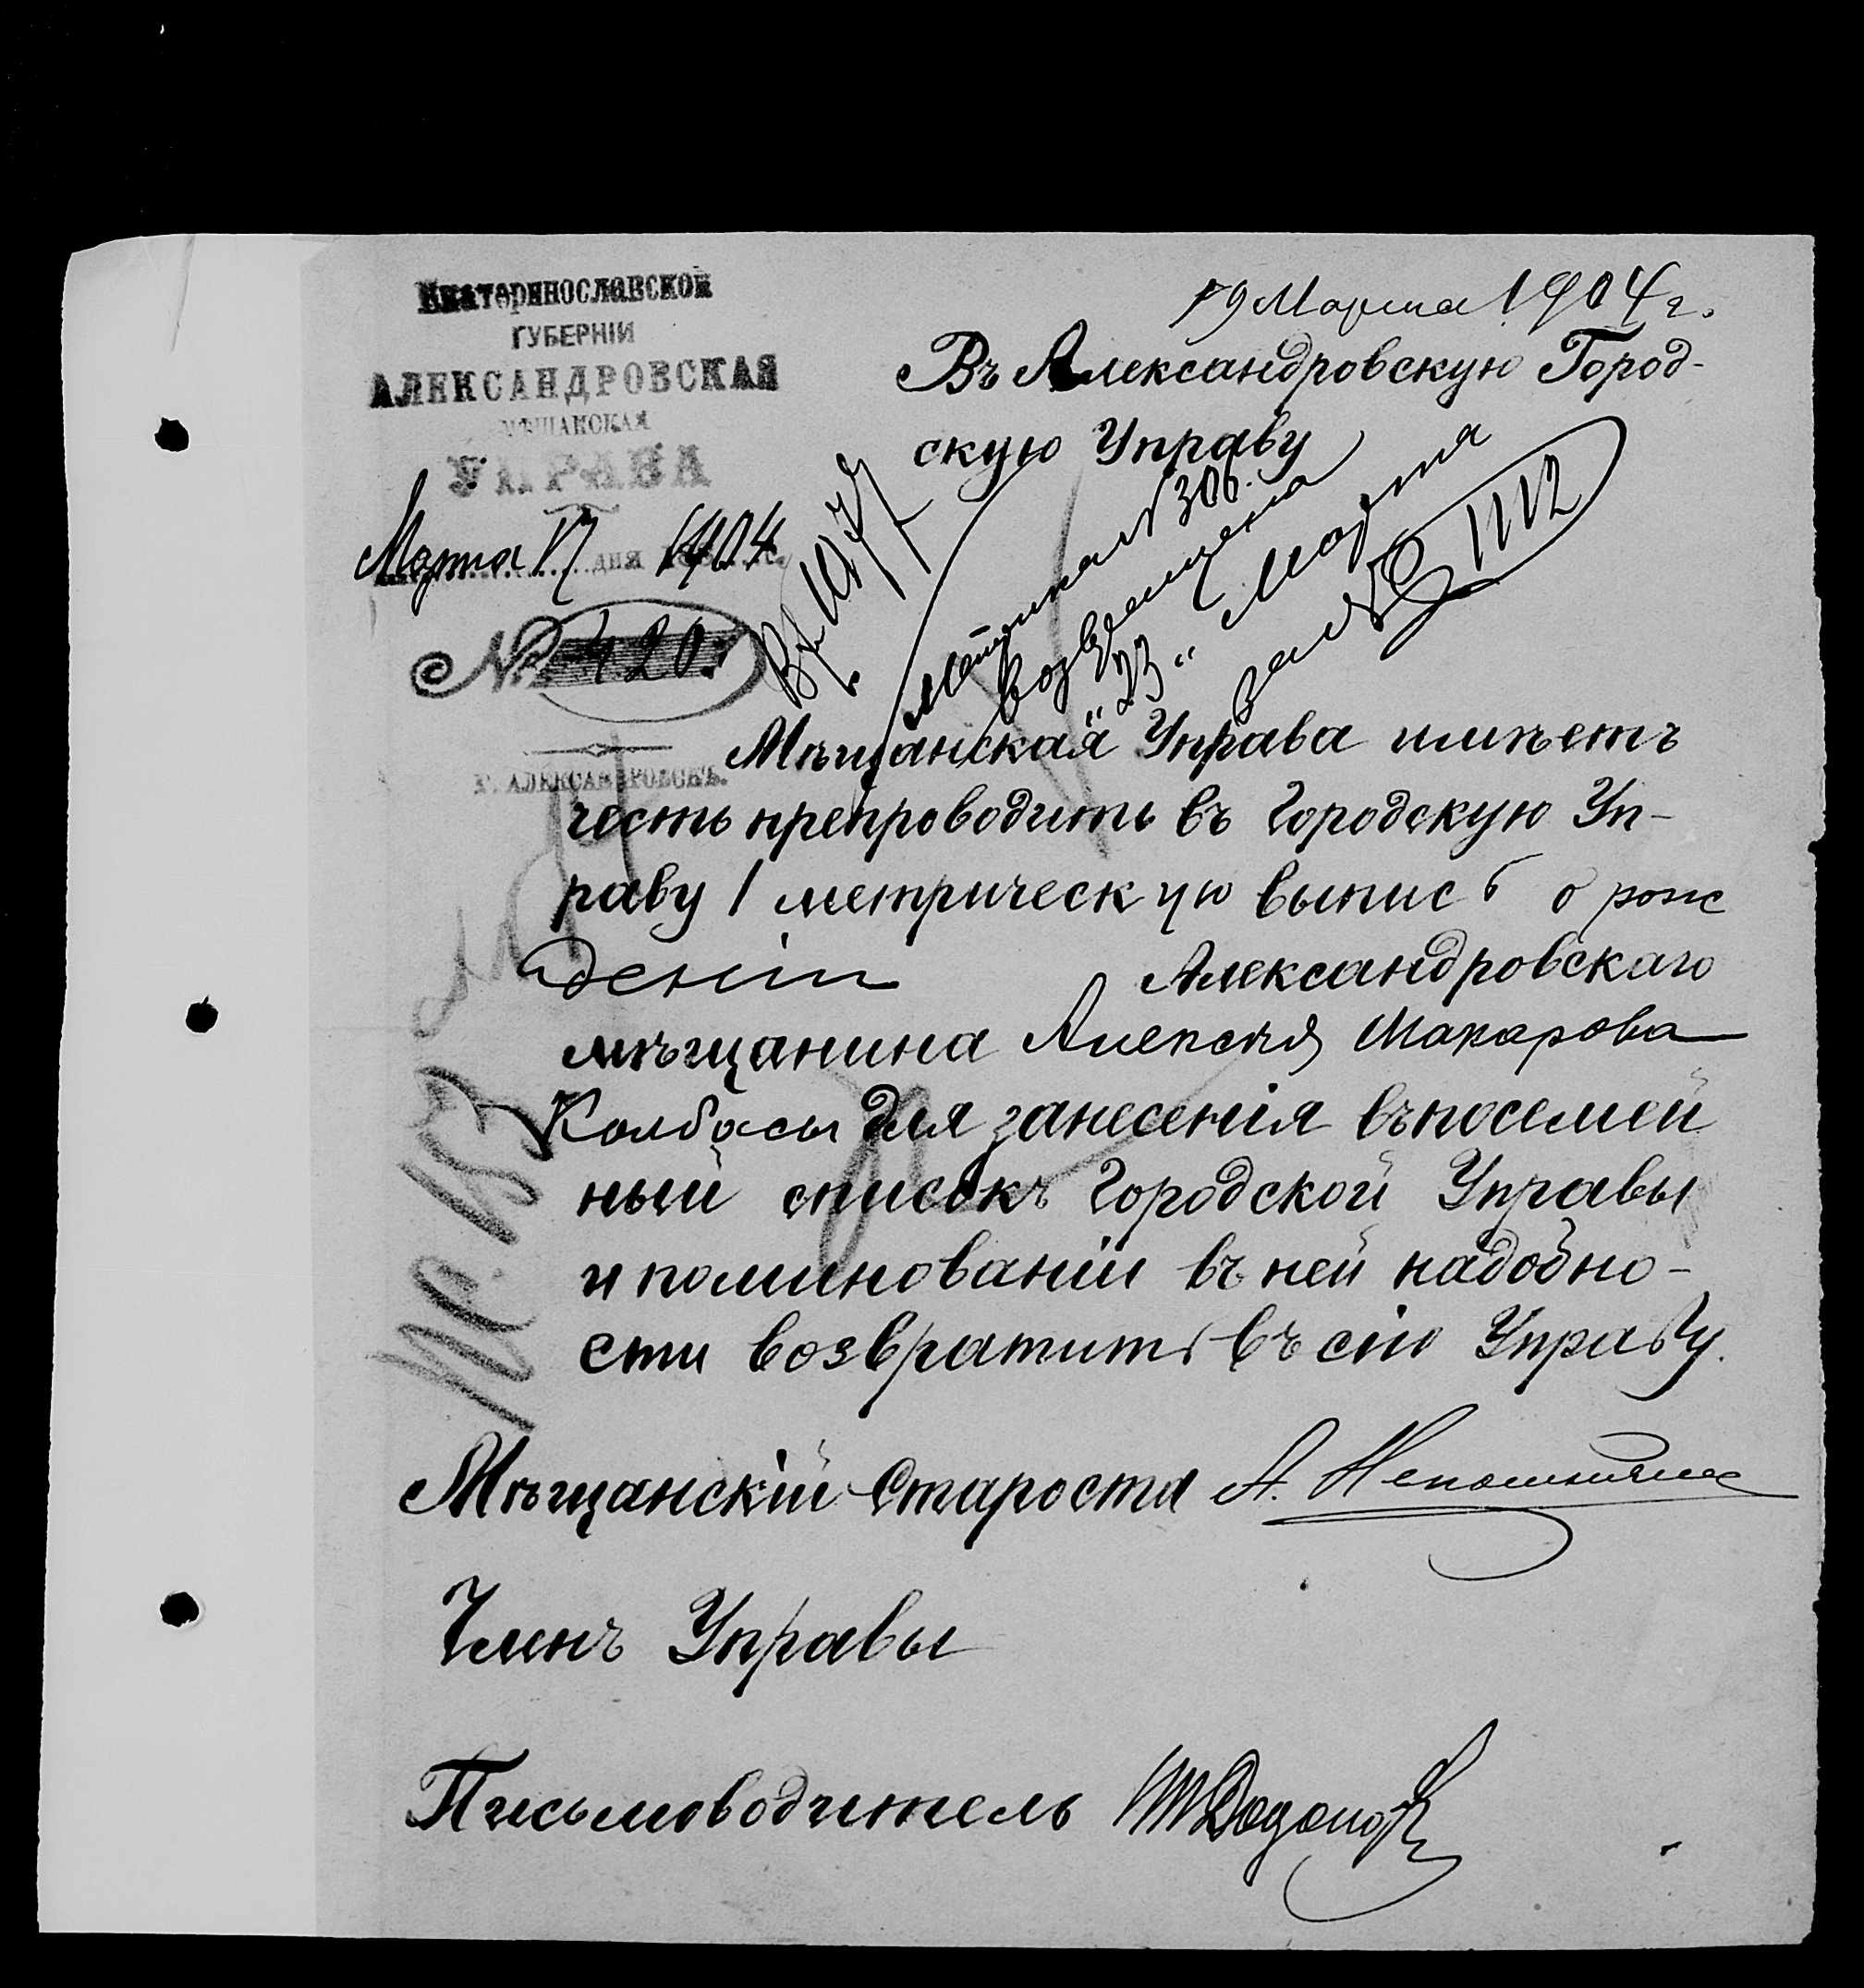 Екатеринославской
ГУБЕРНІИ
АЛЕКСАНДРОВСКАЯ
МѢЩАНСКАЯ
УПРАВА
Марта 17 дня 1904 г.
№ 420
Г. АЛЕКСАНДРОВСКЪ.
19 Марта 1904 г.
Въ Александровскую Город-
скую Управу
Вх. 1077
Метрика № 306.
возвращена
"23" Марта
за № 1112
Мѣщанская Управа имѣетъ
честь препроводить въ Городскую Уп-
раву 1 метрическую выпись о рож
деніи Александровскаго
мѣщанина Алексѣя Макарова
Колбасы для занесенія въ посемей
ный списокъ Городской Управы
и поминованіи въ ней надобно-
сти возвратить въ сію Управу.
Мѣщанскій Староста А.
Членъ Управы
Письмоводитель